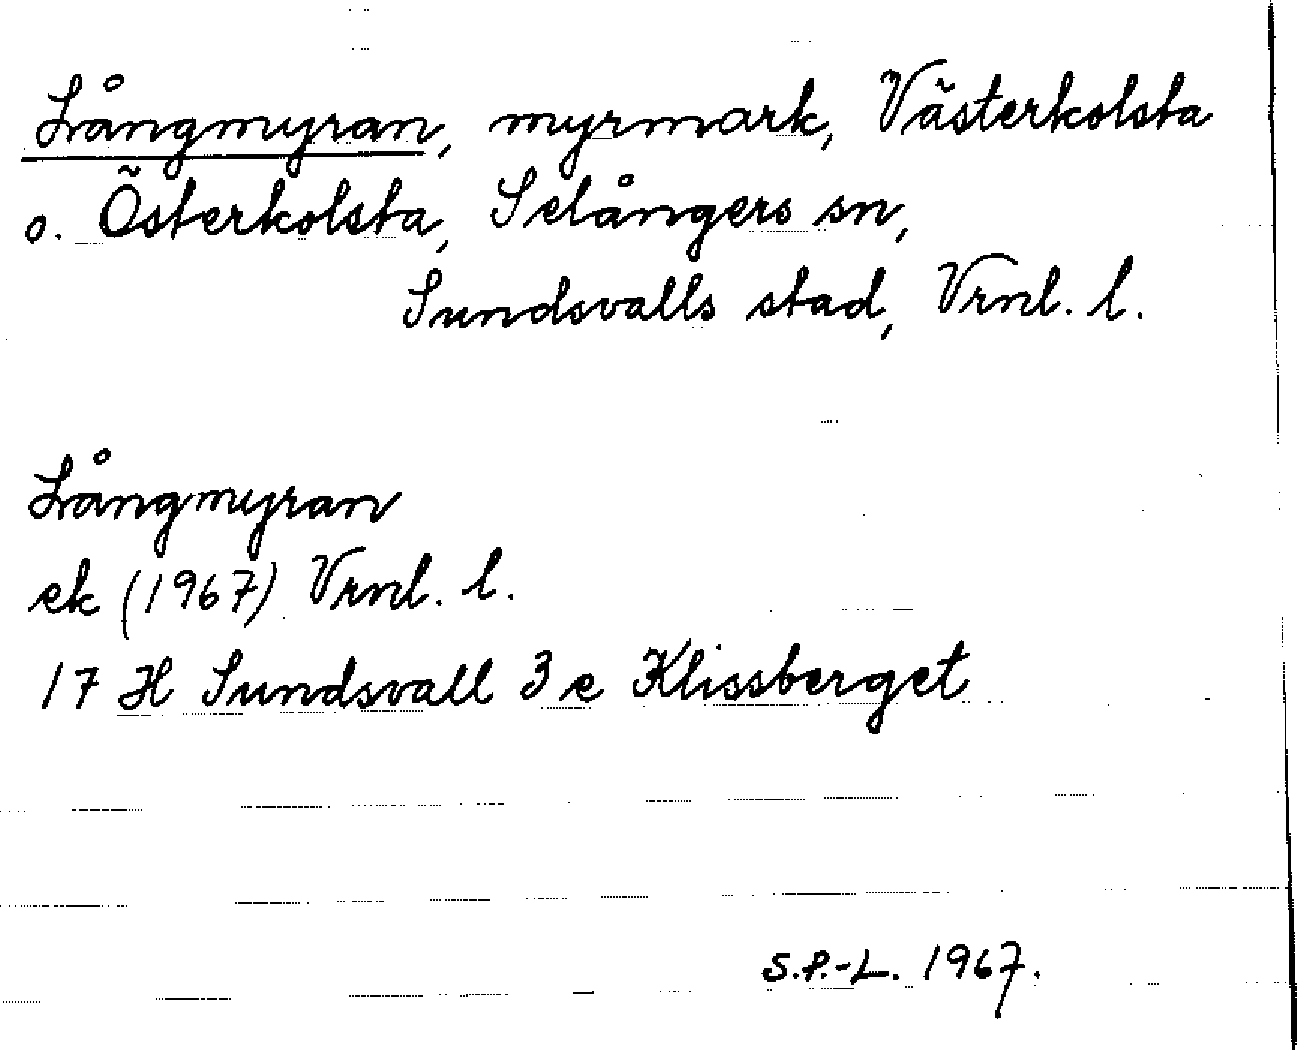 Långmyran, myrmark, Västerkolsta
o. Österkolsta, Selångers sn,
Sundsvalls stad, Vrnl. l.
Långmyran
ek (1967) Vrnl. l.
17 H Sundsvall 3 e Klissberget
S.P.-L. 1967.